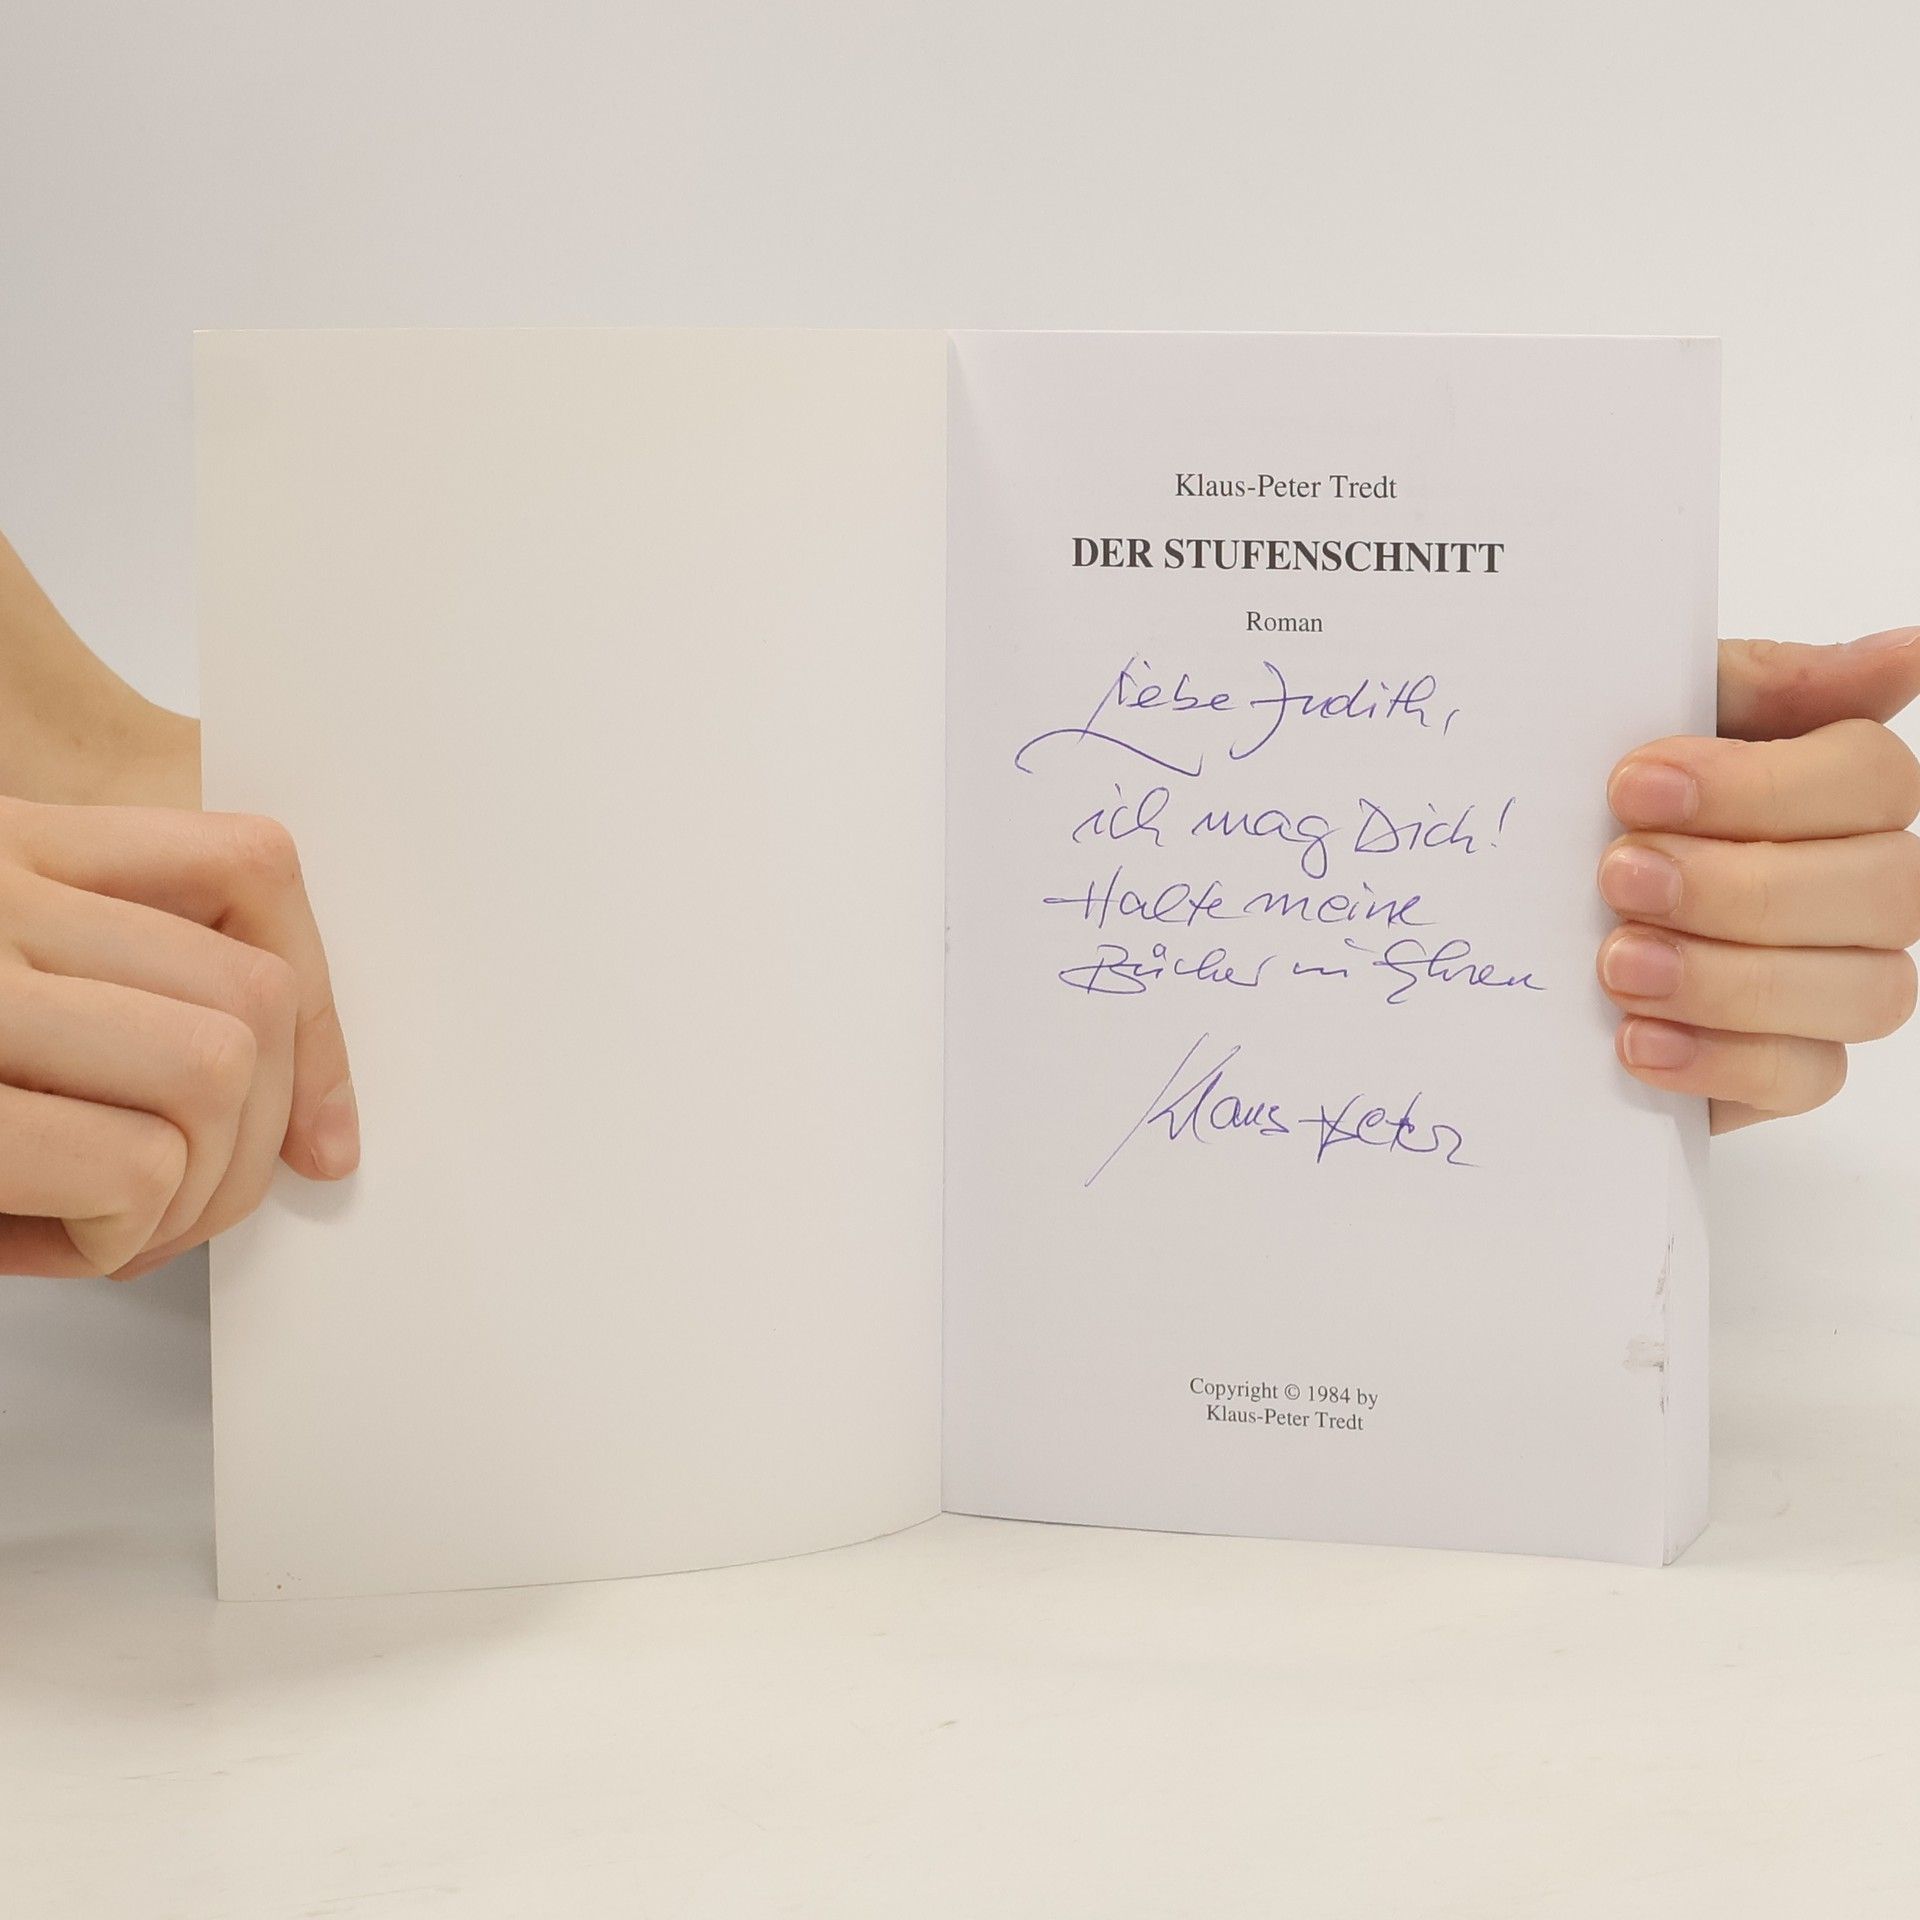 Klaus-Peter Tredt
DER STUFENSCHNITT
Roman
Liebe Judith,
ich mag Dich!
Halte meine
Bücher in Ehren
Klaus-Peter
Copyright © 1984 by
Klaus-Peter Tredt